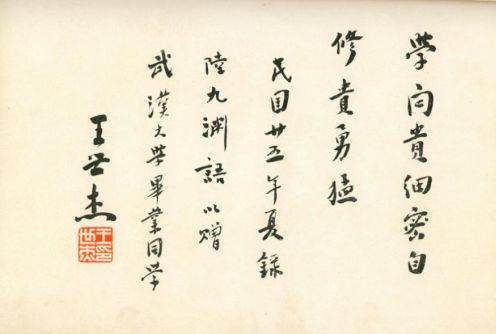 學问貴細密自
修貴勇猛
民国廿五年夏録
陸九渊語以贈
武漢大学畢業同学
王世杰
王世杰印